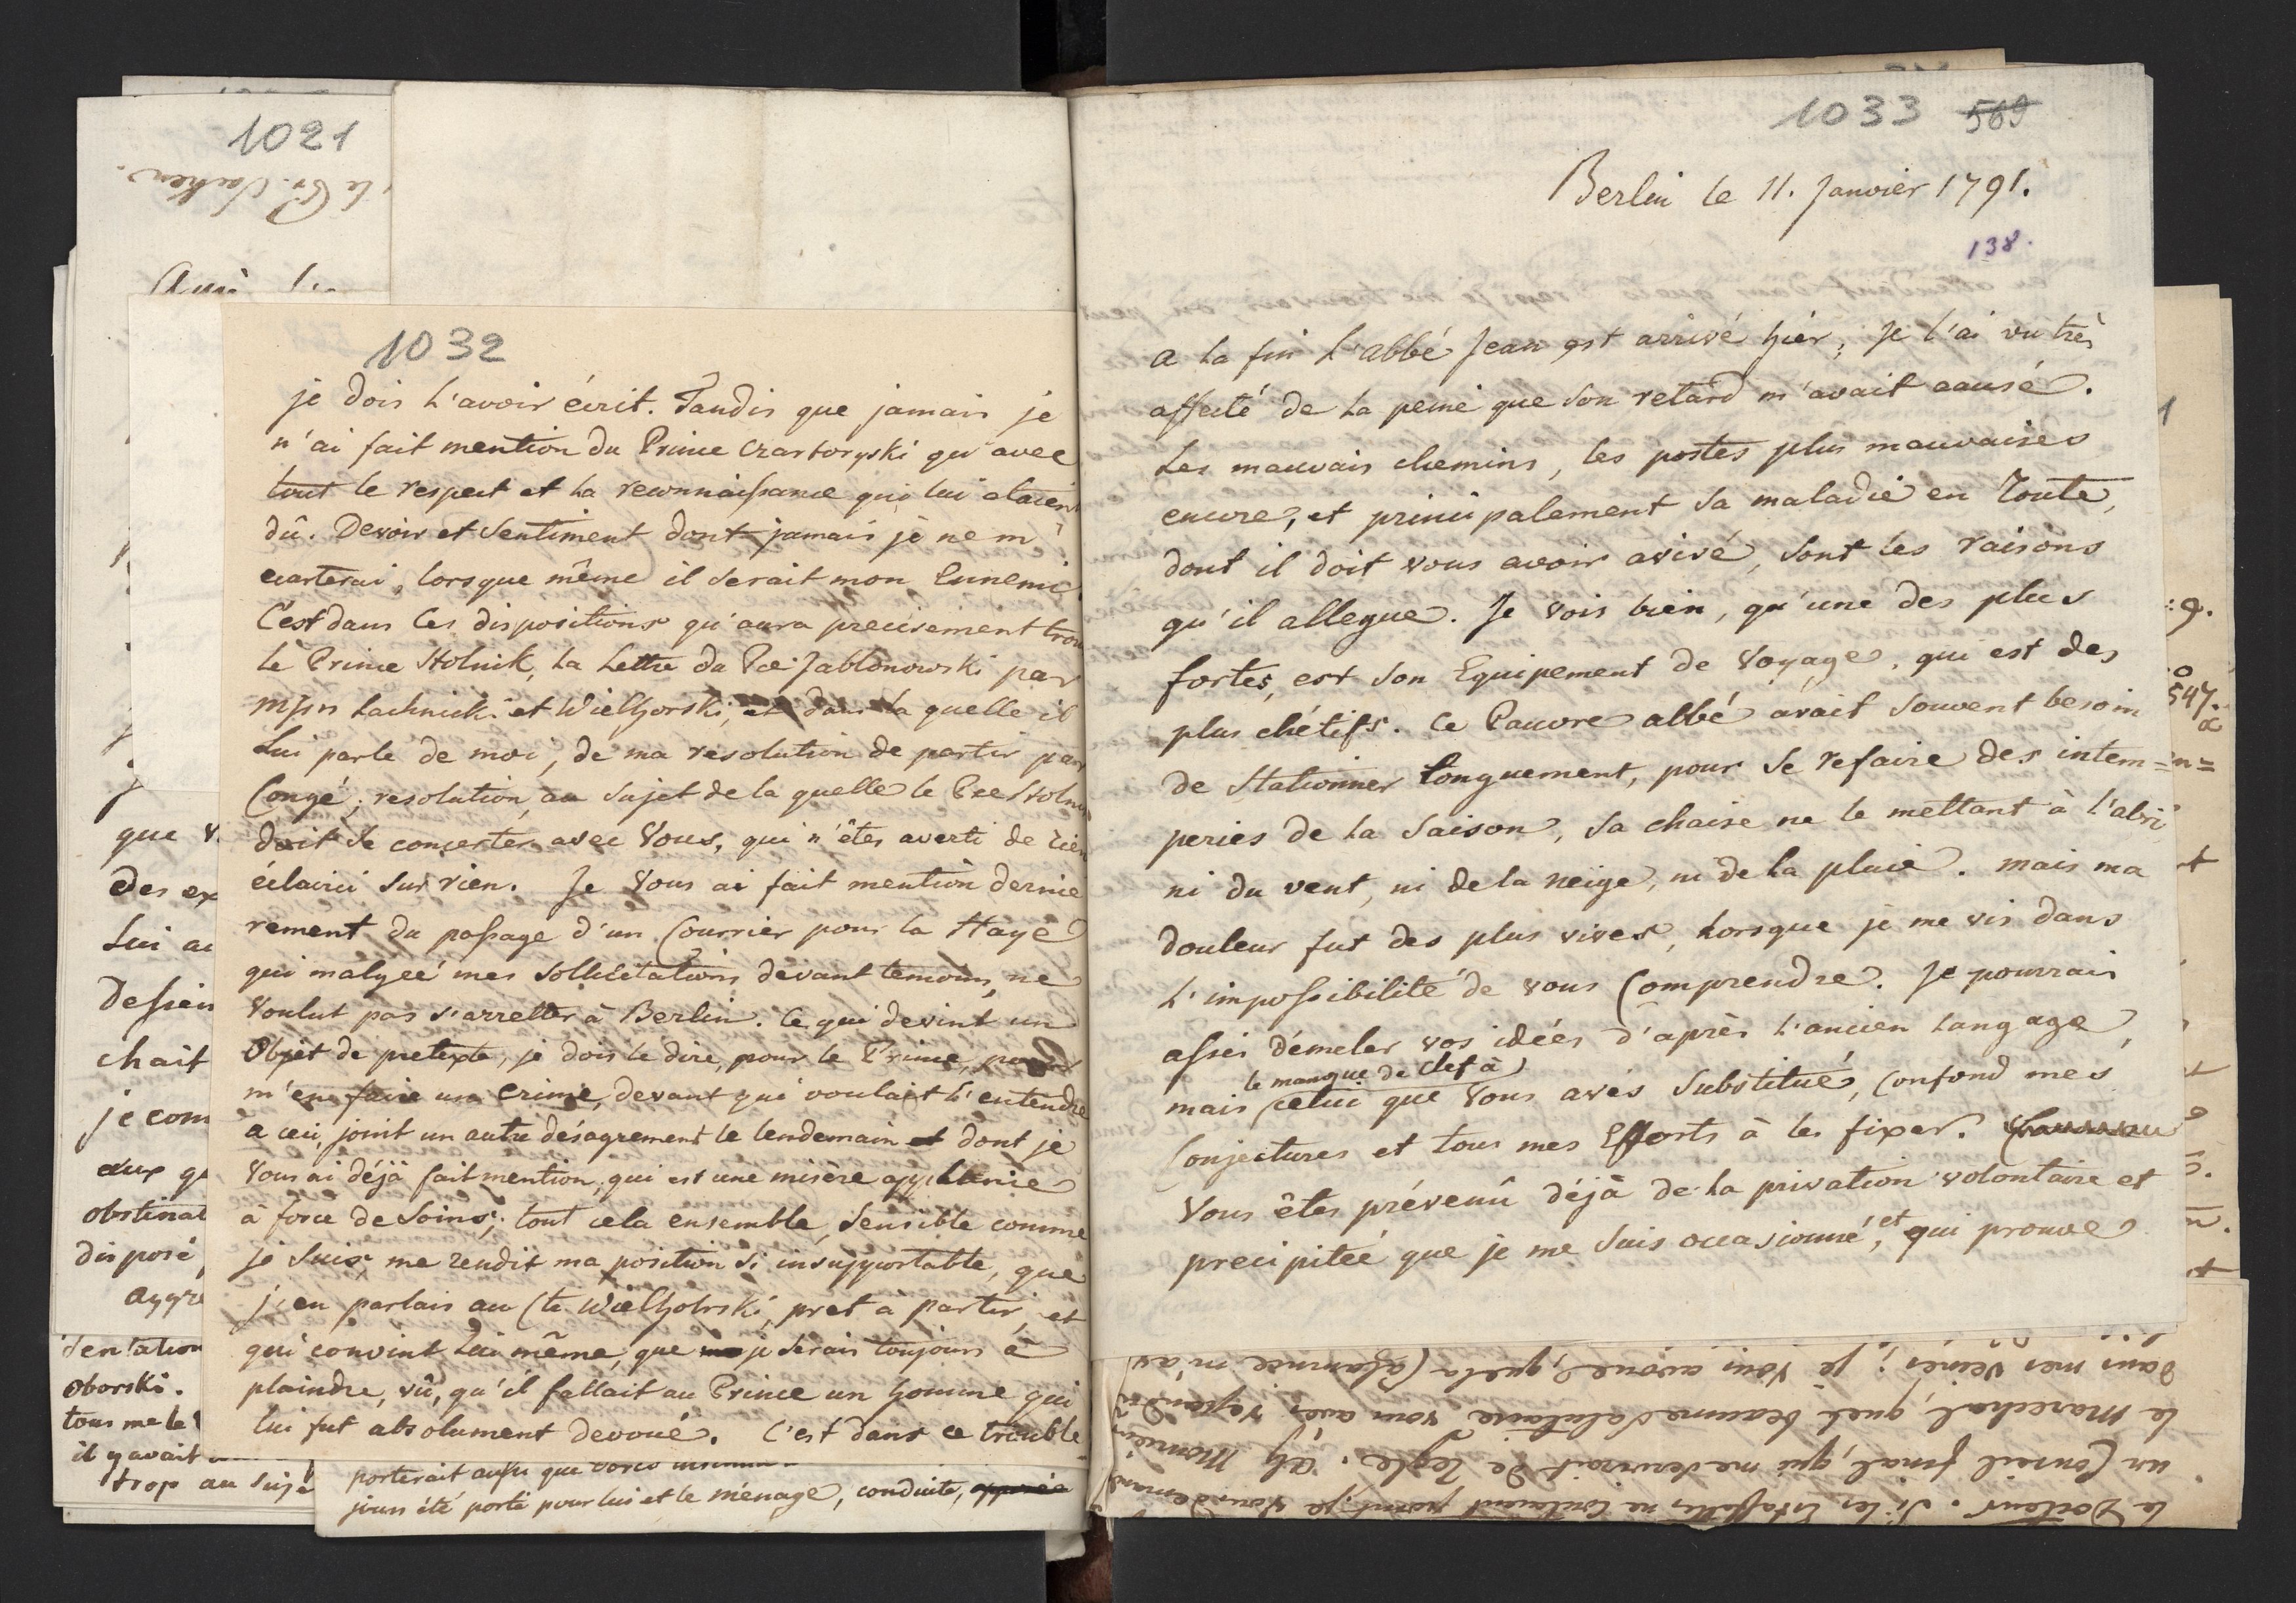 1021
le Pr.
1032
je dois l'avoir écrit. Tandis que jamais je
n'ai fait mention du Prince Czartoryski qu'avec
tout le respect et la reconnaissance qui lui etaient
dû. Devoir et Sentiment dont jamais je ne m'
ecarterai, lorsque même il serait mon Ennemi
C'est dans ces dispositions qu'aura precisement trou
le Prince Stolnik, la Lettre du Pce Jablonowski par
Mssrs Lachnicki et Wielhorski, et dans la quelle il
Lui parle de moi, de ma resolution de partir par
Congé; resolution, au Sujet de la quelle le Pce Stolni
doit se concerter avec Vous, qui n'êtes averti de rien
éclairci sur rien. Je Vous ai fait mention dernie
rement du passage d'un Courrier pour la Haye
qui malgreé mes sollicitations devant temoins, ne
Voulut pas s'arretter à Berlin. Ce qui devint un
Objet de pretexte, je dois le dire, pour le Prince, pour
m'en faire un crime, devant qui voulait l'entendre
a ceci, joint un autre désagrement le lendemain et dont je
Vous ai déjà fait mention, qui est une misère applanie
à force de Soins; tout cela ensemble, Sensible comme
je Suis, me rendit ma position si insupportable, que
j'en parlais au Cte Wielhohrski, pret à partir, et
qui convint Lui même, que je serais toujours à
plaindre, vû, qu'il fallait au Prince un homme qui
lui fut absolument devoué. C'est dans ce trouble
que v.
des ex
Lui au
Dessein
chait
je com
eux qu
obstinat
disposé,
aggre
sentation
oborski.
tous me le
il y avait
trop au Suje
porterait aussi que
jours été porté pour lui et le ménage, conduite,
1033 569
Berlin le 11. Janvier 1791.
138.
a la fin l'abbé Jean est arrivé hièr; Je l'ai vu très
affecté de la peine que son retard m'avait causé.
Les mauvais chemins, les postes plus mauvaises
encore, et principalement Sa maladie en Route,
dont il doit vous avoir avisé, sont les raisons
qu'il allegue. Je vois bien, qu'une des plus
fortes, est son Equipement de Voyage, qui est des
plus chétifs. Ce Pauvre abbé avait souvent besoin
de Stationner longuement, pour se refaire des intem=
peries de la Saison, Sa chaise ne le mettant à l'abri
ni du vent, ni de la neige, ni de la pluie. mais ma
douleur fut des plus vives, lorsque je me vis dans
l'impossibilité de vous Comprendre. Je pourrais
assés démeler vos idées d'après l'ancien langage,
le manque de clef à
mais celui que Vous avés Substitué, Confond mes
Conjectures et tous mes Efforts à les fixer.
Vous êtes prévenû déjà de la privation volontaire et
precipiteé que je me suis occasionné, et qui prouve
: 9.
547.
n=
le Docteur. Si les Estaffettes ne coutaient point, je Vous demand
un Conseil final, qui me servirait de Regle. Ah Monsieur
le Marechal, quel beaume salutaire vous avés repandu
dans mes veines; je Vous avoue, que la Calomnie m'av